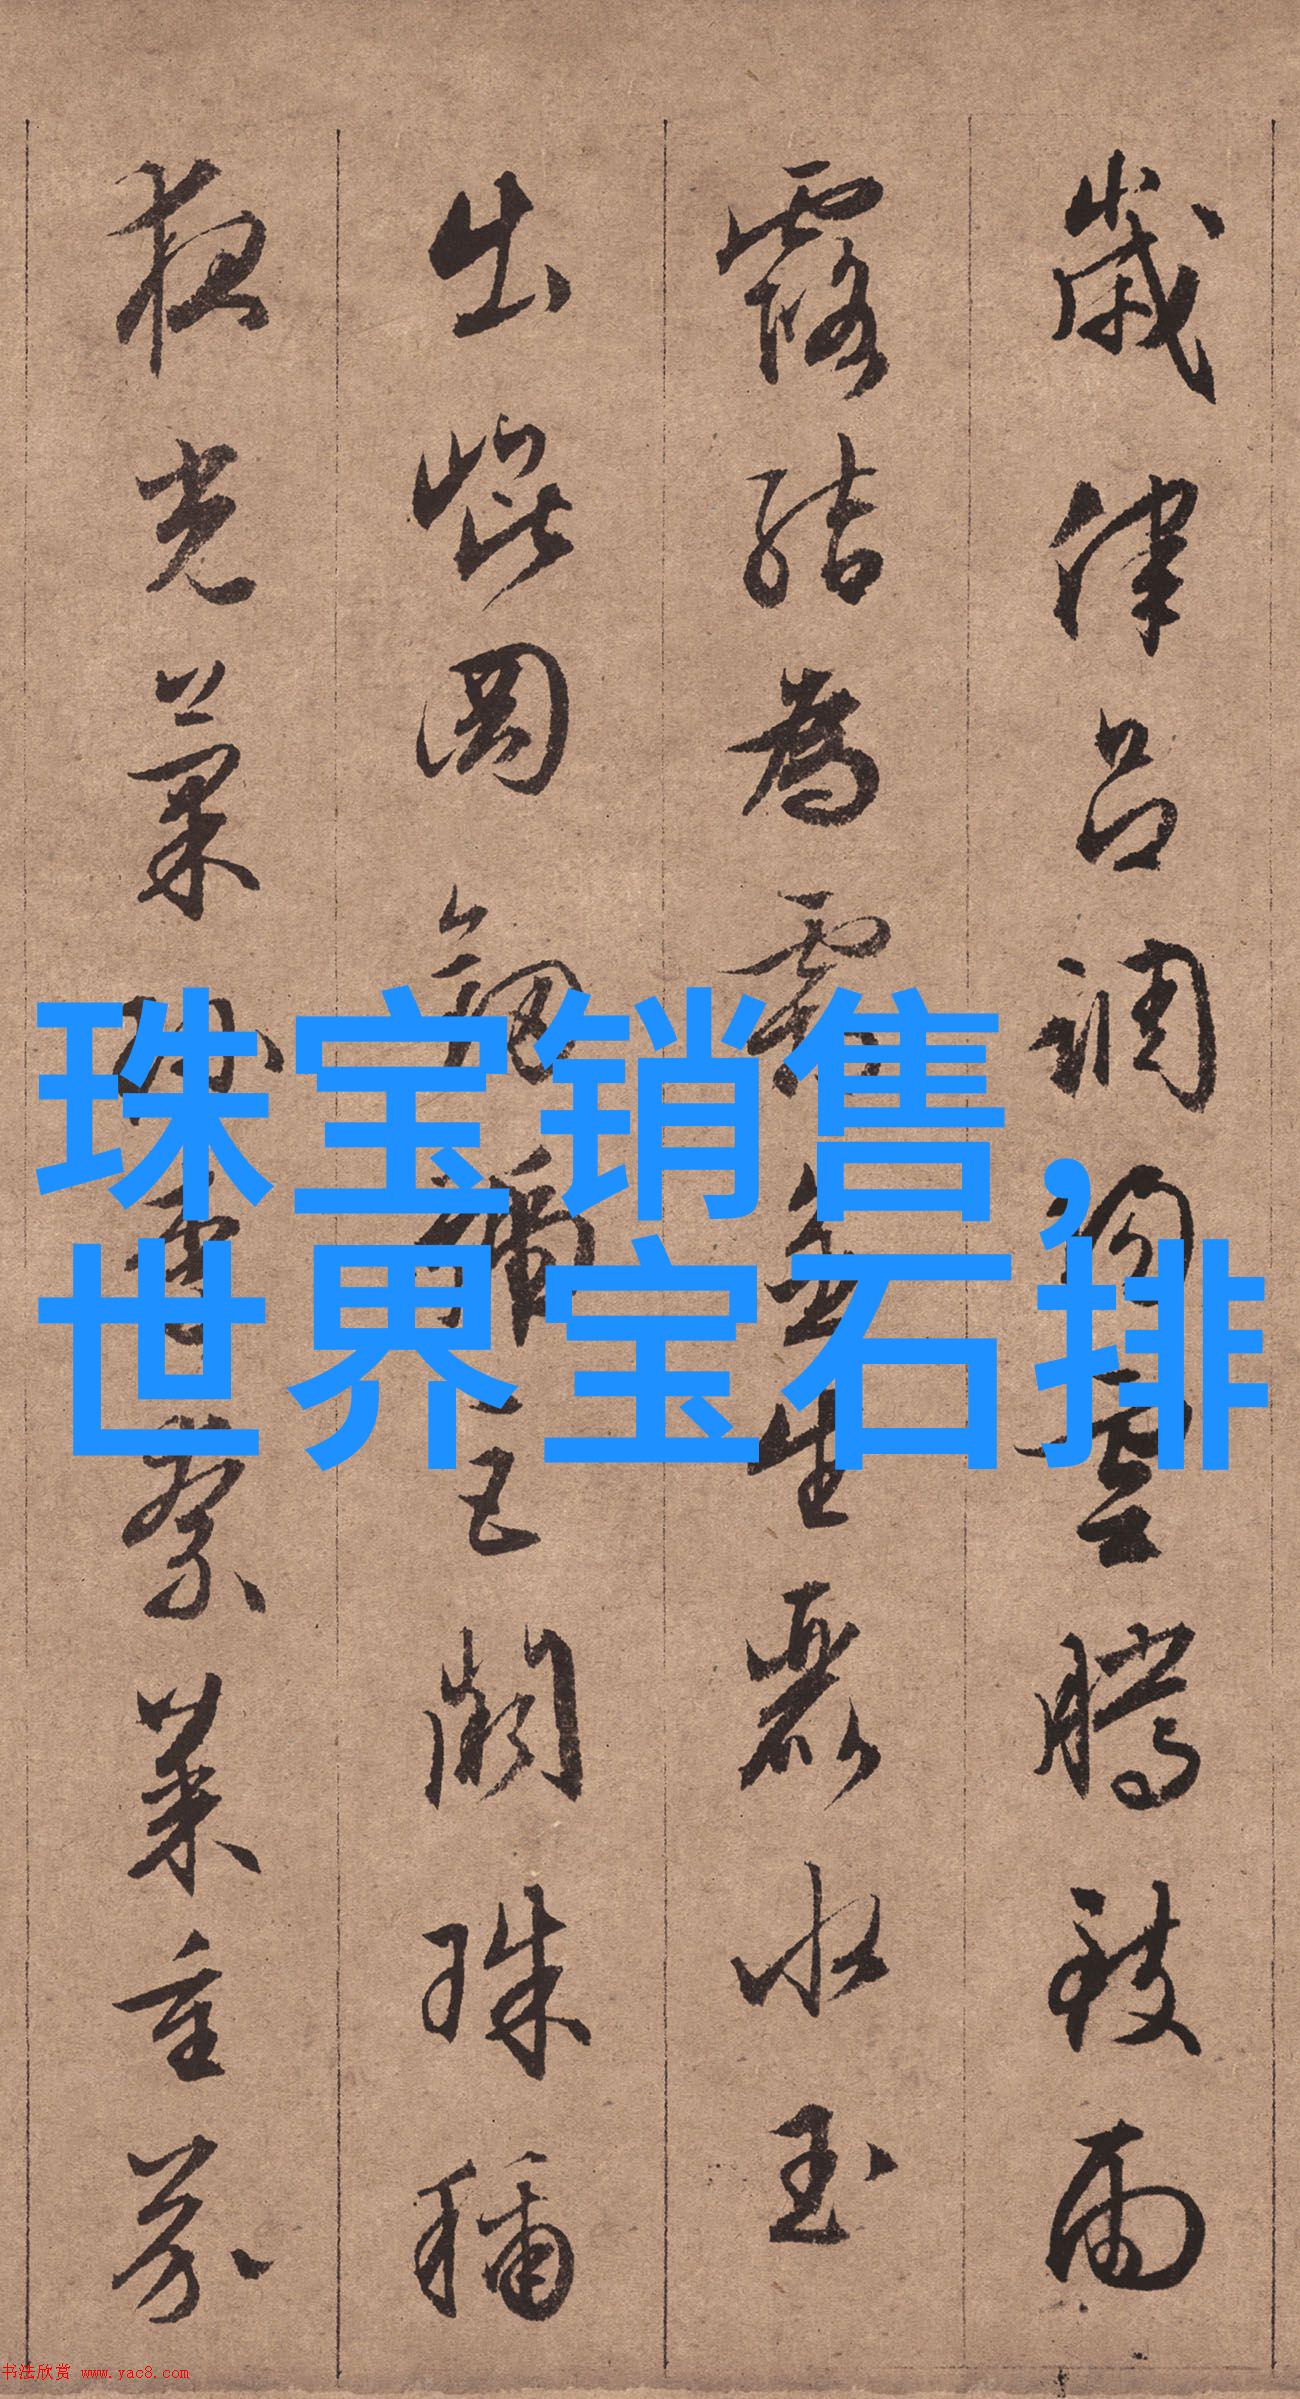 歲律呂調陽雲騰致雨
露結為霜金生麗水玉
出崐岡劍號巨闕珠稱
夜光菓珍李柰菜重芥
珠宝销售,
世界宝石排
书法欣赏 www.yac8.com